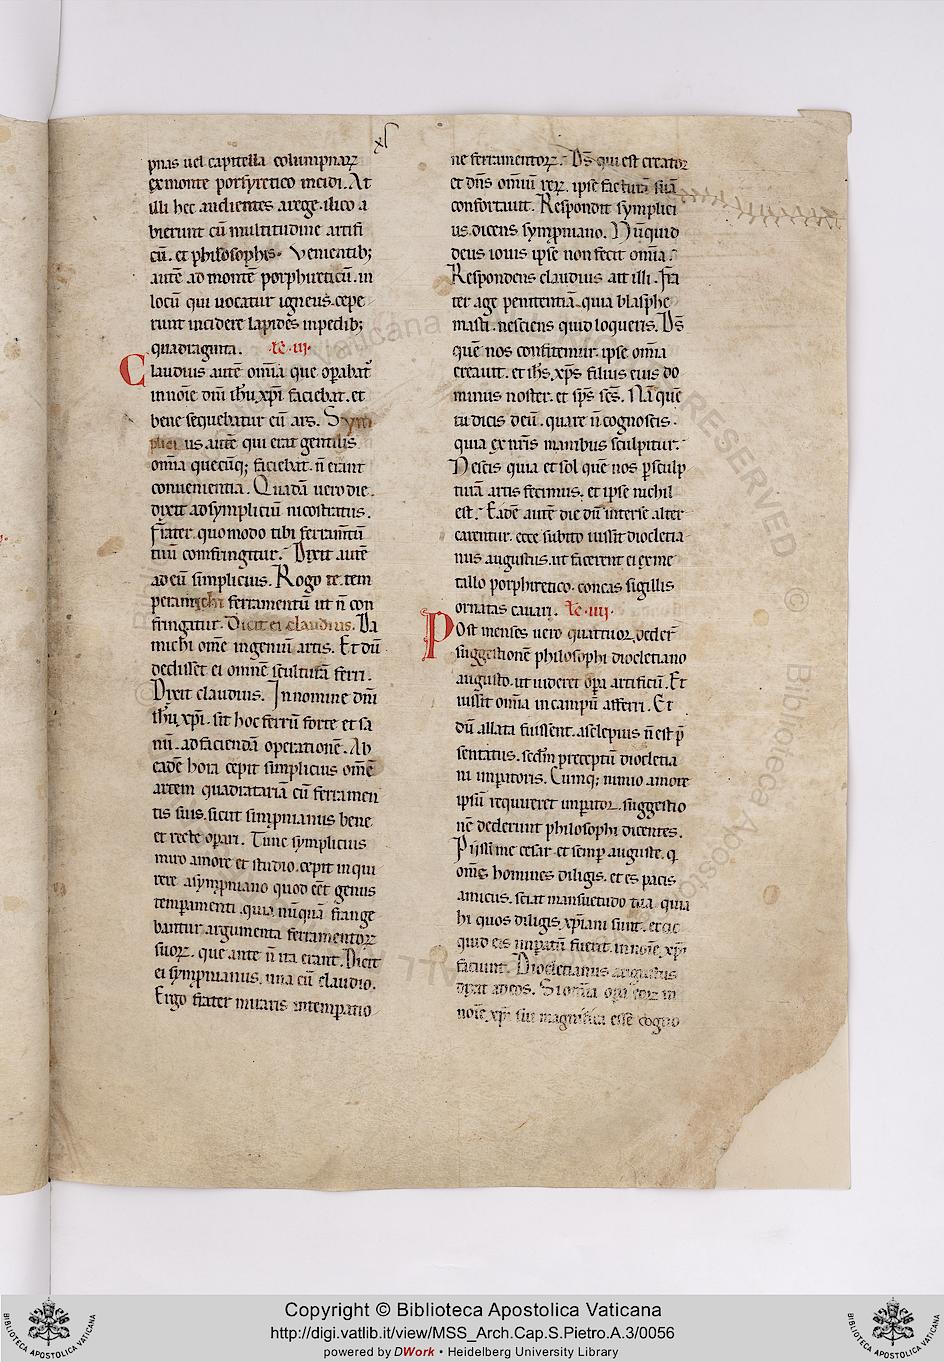 xl
pnas uel capitella columpnaꝝ
ex monte porfyretico incidi. At
illi hec audientes a rege. ilico a
bierunt cū multitudine artifi
cū. et philosophis. Venientib;
autē ad montē porphireticū. in
locū qui uocatur igneus. cepe
runt incidere lapides in pedib;
quadraginta. łc. iii.
Claudius autē omīa que oꝑabat᷑
in noīe dn̄i ih̄u xp̄i faciebat. et
bene sequebatur eū ars. Sym
plici us autē qui erat gentilis
omīa quecūq; faciebat. n̄ erant
conuenientia. Quadā uero die.
dixit ad symplicium nicostratus.
Frater. quomodo tibi ferramtū
tuū comfringitur. Dixit autē
ad eū simplicius. Rogo te. tem
pera michi ferramentū ut n̄ con
fringatur. Dicit ei claudius. Da
michi omē ingeniū artis. Et dū
dedisset ei omnē sculturā ferri.
Dixit claudius. In nomine dn̄i
ih̄u xp̄i. sit hoc ferrū forte et sa
nū. ad faciendā operationē. Ab
eadē hora cepit simplicius omē
artem quadratariā cū ferramen
tis suis. sicut simpnianus bene
et recte oꝑari. Tunc symplicius
miro amore et studio. cepit inqui
rere a sympniano quod eēt genus
temꝑamenti. quia nūquā frange
bantur argumenta ferramentoꝝ
suoꝝ. que ante n̄ ita erant. Dicit
ei sympnianus. una cū claudio.
Ergo frater miraris in temꝑatio
ne ferramentoꝝ. Ds̄ qui est creator
et dn̄s omniū reꝝ. ipse facturā suā
confortauit. Respondit symplici
us. dicens sympniano. Nūquid
deus iouis ipse non fecit omīa.
Respondens claudius ait illi. Fra
ter age penitentiā. quia blasphe
masti. nesciens quid loqueris. Ds̄
quē nos confitemur. ipse omīa
creauit. et ih̄s xp̄s filius eius do
minus noster. et sp̄s sc̄s. Nā quē
tu dicis deū. quare n̄ cognoscis.
quia ex nr̄is manibus sculpitur.
Nescis quia et sol quē nos ꝑ sculp
turā artis fecimus. et ipse nichil
est. Eadē autē die dū inter se alter
carentur. ecce subito iussit diocletia
nus augustus. ut facerent ei ex me
tallo porphiretico. concas sigillis
ornatas cauari. łc. iiii.
Post menses uero quattuor. deder̄
suggestionē philosophi diocletiano
augusto. ut uideret oꝑa artificū. Et
iussit omīa in campū afferri. Et
dū allata fuissent. asclepius n̄ est p̄
sentatus. scd̄m preceptū diocletia
ni imꝑatoris. Cumq; nimio amore
ipsū requireret imꝑator. suggestio
nē dederunt philosophi dicentes.
Piissime cesar et semꝑ auguste. q
omēs homines diligis. et es pacis
amicus. sciat mansuetudo tua. quia
hi quos diligis xp̄iani sunt. et qic
quid eis imꝑatū fuerit. in noīe xp̄i
faciunt. Diocletianus augustus
dixit ad eos. Si omīa oꝑa eoꝝ in
noīe xp̄i siu magnifica esse cogno
Copyright © Biblioteca Apostolica Vaticana
http://digi.vatlib.it/view/MSS_Arch.Cap.S.Pietro.A.3/0056
powered by DWork • Heidelberg University Library
BIBLIOTECA APOSTOLICA VATICANA
BIBLIOTECA APOSTOLICA VATICANA